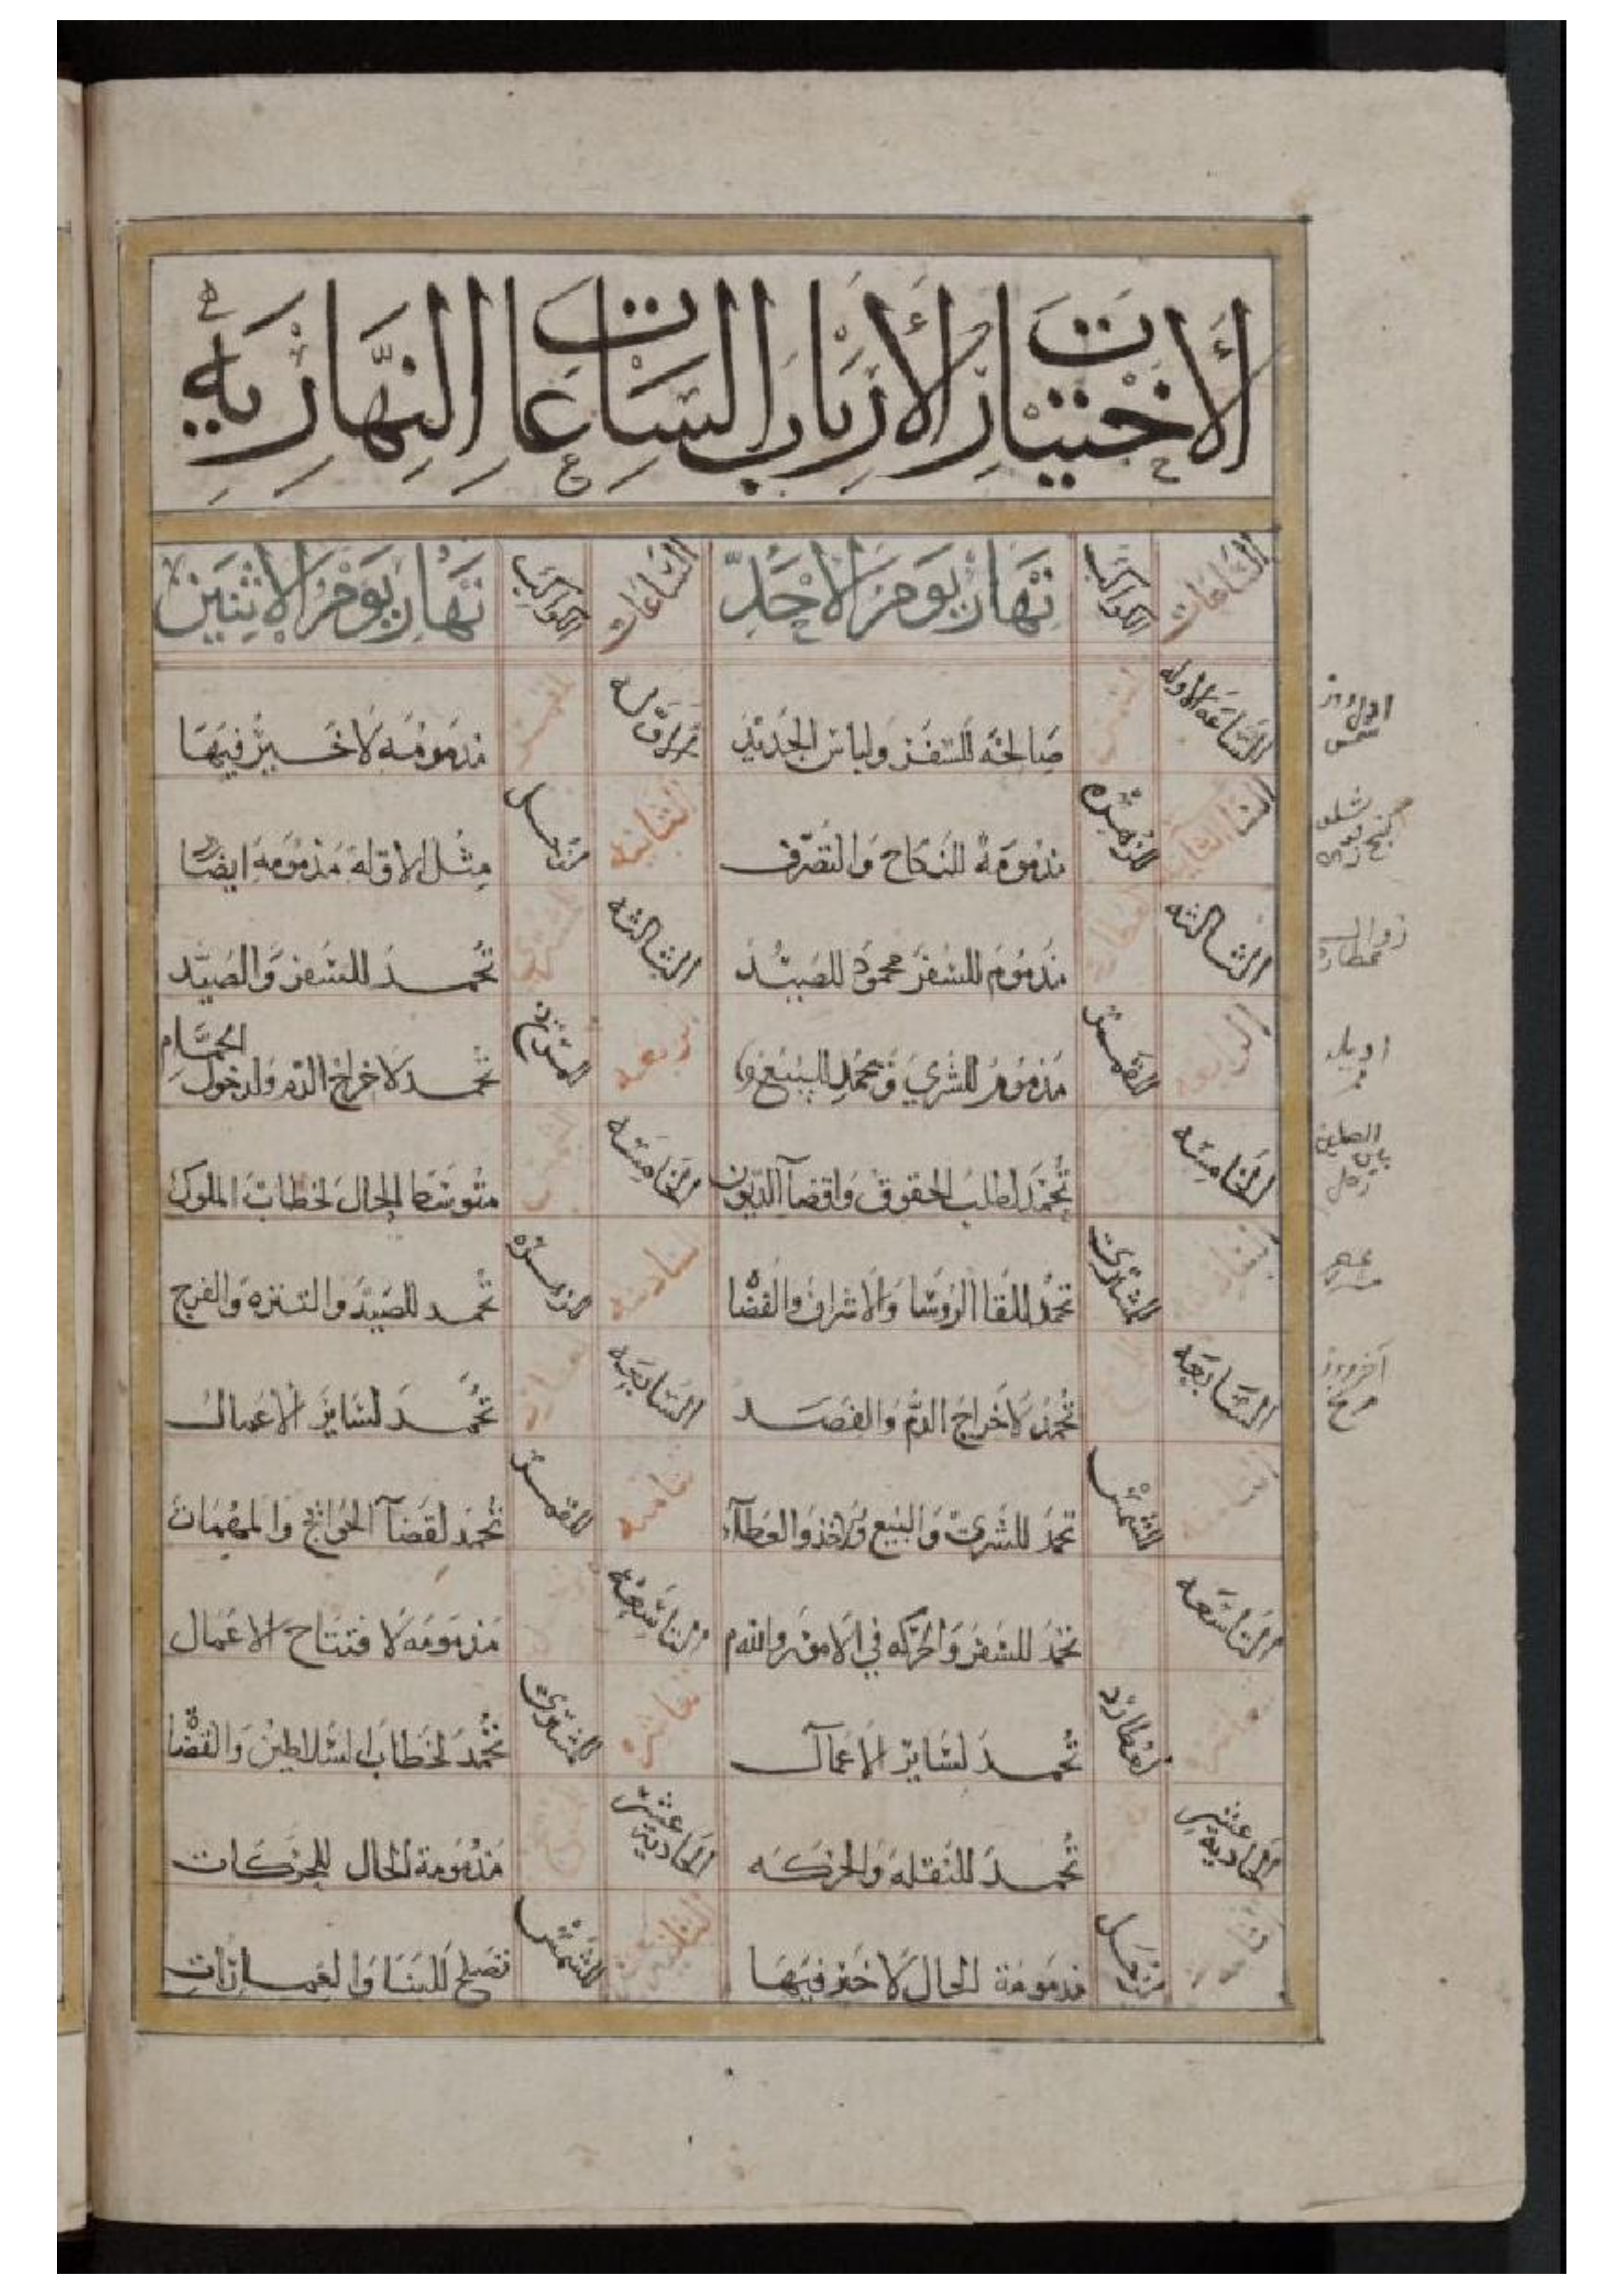 الاختيارات لأرباب الساعات النهارية
الساعات الكواكب نهار يوم الاحد الساعات الكواكب نهار يوم الاثنين
الساعة الاوله صالحة للسفر ولباس الجديد القمر مذمومه لا خير فيها
الثانية الزهره مذمومة للنكاح والتصرف الثانية زحل مثل الاولة مذمومة ايضا
الثالثه عطارد مذموم للسفر محمود للصيد الثالثه المشتري تحمد للسفر والصيد
الرابعه القمر مذموم للشري وتحمد للبيع الرابعه المريخ تحمد لاخراج الدم ولدخول الحمام
الخامسه تحمد لطلب الحقوق واقضآ الديون الخامسه الشمس متوسطا الحال لخطاب الملوك
السادسه المشتري تحمد للقا الروسا والاشراف والقضا السادسه الزهره تحمد للصيد والتنزه والفرج
السابعه تحمد لاخراج الدم والفصد السابعه عطارد تحمد لسائر الاعمال
الشمس تحمد للشري والبيع والاخذ والعطآء الثامنه القمر تحمد لقضآ الحوائج والمهمات
التاسعه تحمد للسفر والحركه في الامور والله م التاسعة مذمومه لافتتاح الاعمال
العاشره عطارد تحمد لسائر الاعمال العاشره المشتري تحمد لخطاب السلاطين والقضا
الحادية عشر تحمد للنقلة والحركه الحادية عشر المريخ مذمومة الحال للحركات
زحل مذمومة الحال لا خير فيها الثانية عشر الشمس تصلح للبنا والعمارات
اول روز
شمس
زوال
عطارد
قمر
زحل
عصر
آخر روز
مريخ